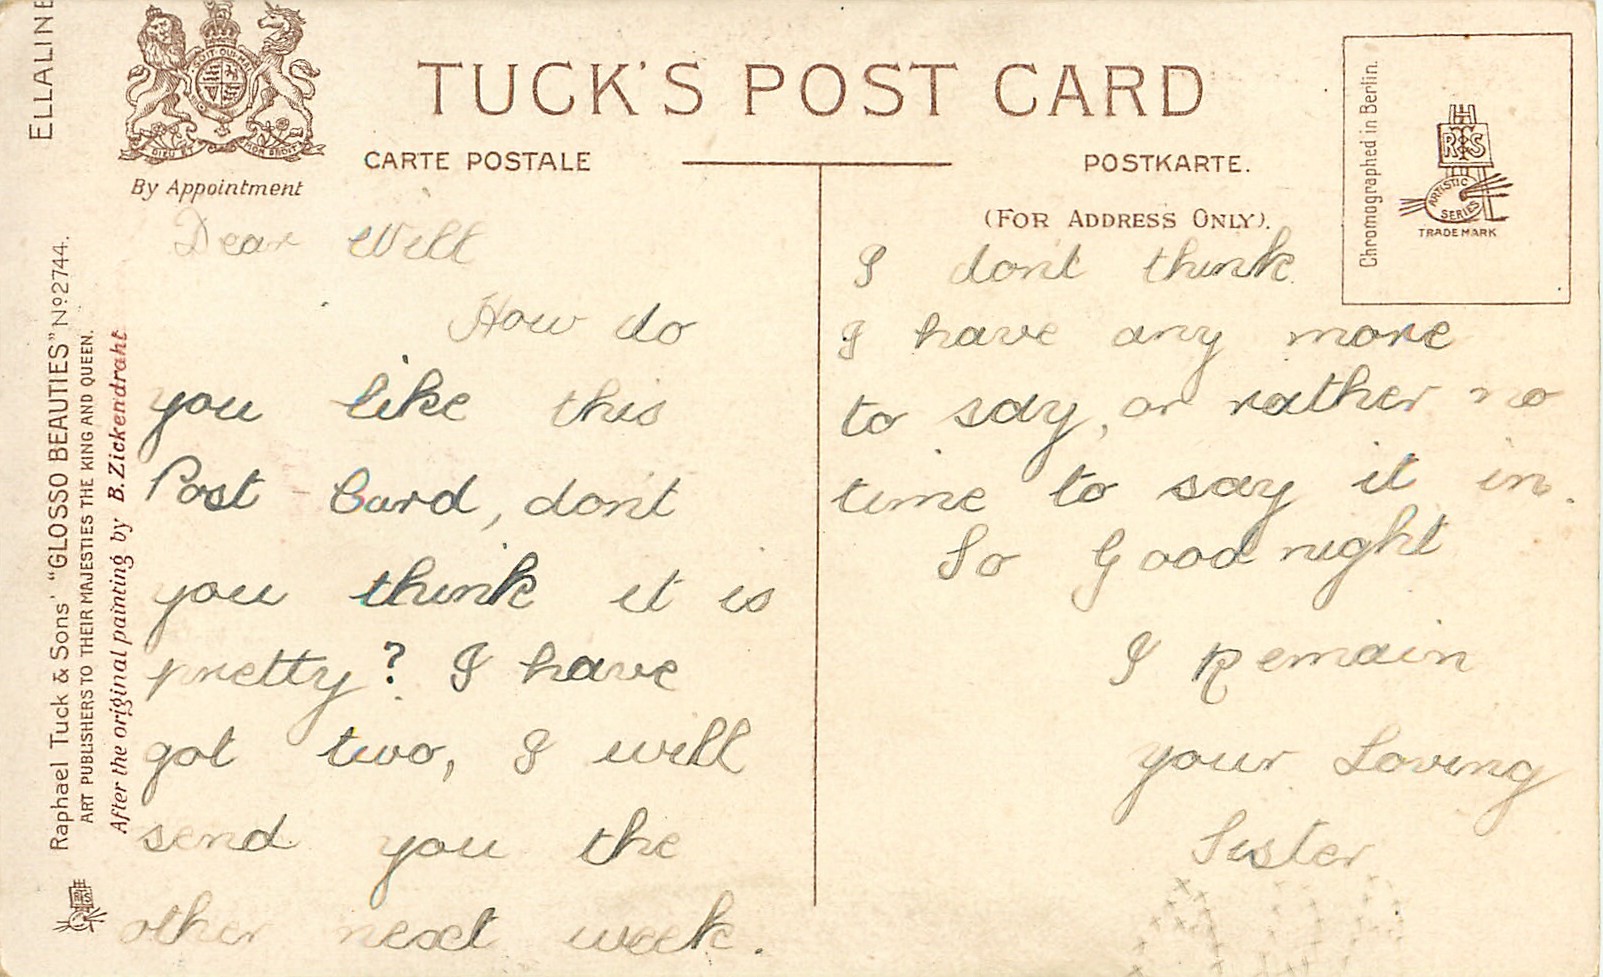 ELLALINE
SOIT QUI MAL
DIEU ET MON DROIT
By Appointment
TUCK'S POST CARD
CARTE POSTALE
POSTKARTE.
(FOR ADDRESS ONLY).
Chromographed in Berlin.
R T S
ARTISTIC
SERIES
TRADE MARK
Raphael Tuck & Sons' "GLOSSO BEAUTIES" Nº 2744.
ART PUBLISHERS TO THEIR MAJESTIES THE KING AND QUEEN.
After the original painting by B. Zickendraht
Dear Will
How do
you like this
Post Card, dont
you think it is
pretty? I have
got two, I will
send you the
other next week.
I dont think
I have any more
to say, or rather no
time to say it in.
So Good night
I Remain
your Loving
Sister